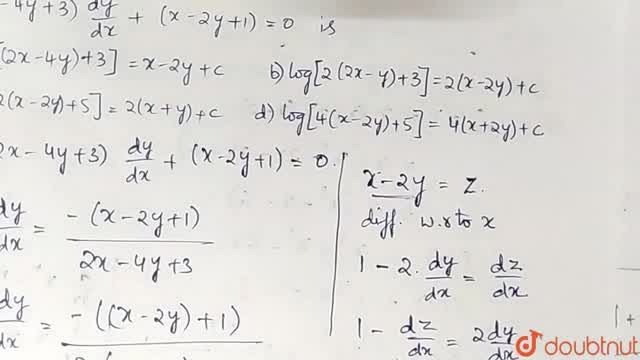 -4y+3) dy/dx + (x-2y+1)=0 is
[(2x-4y)+3] = x-2y+c b) log[2(2x-y)+3]=2(x-2y)+c
2(x-2y)+5]=2(x+y)+c d) log[4(x-2y)+5]=4(x+2y)+c
2x-4y+3) dy/dx + (x-2y+1)=0.
dy/dx = -(x-2y+1)/2x-4y+3
dy/dx = -((x-2y)+1)
x-2y = z.
diff. w.r to x
1 - 2. dy/dx = dz/dx
1 - dz/dx = 2dy/dx
1+
doubtnut